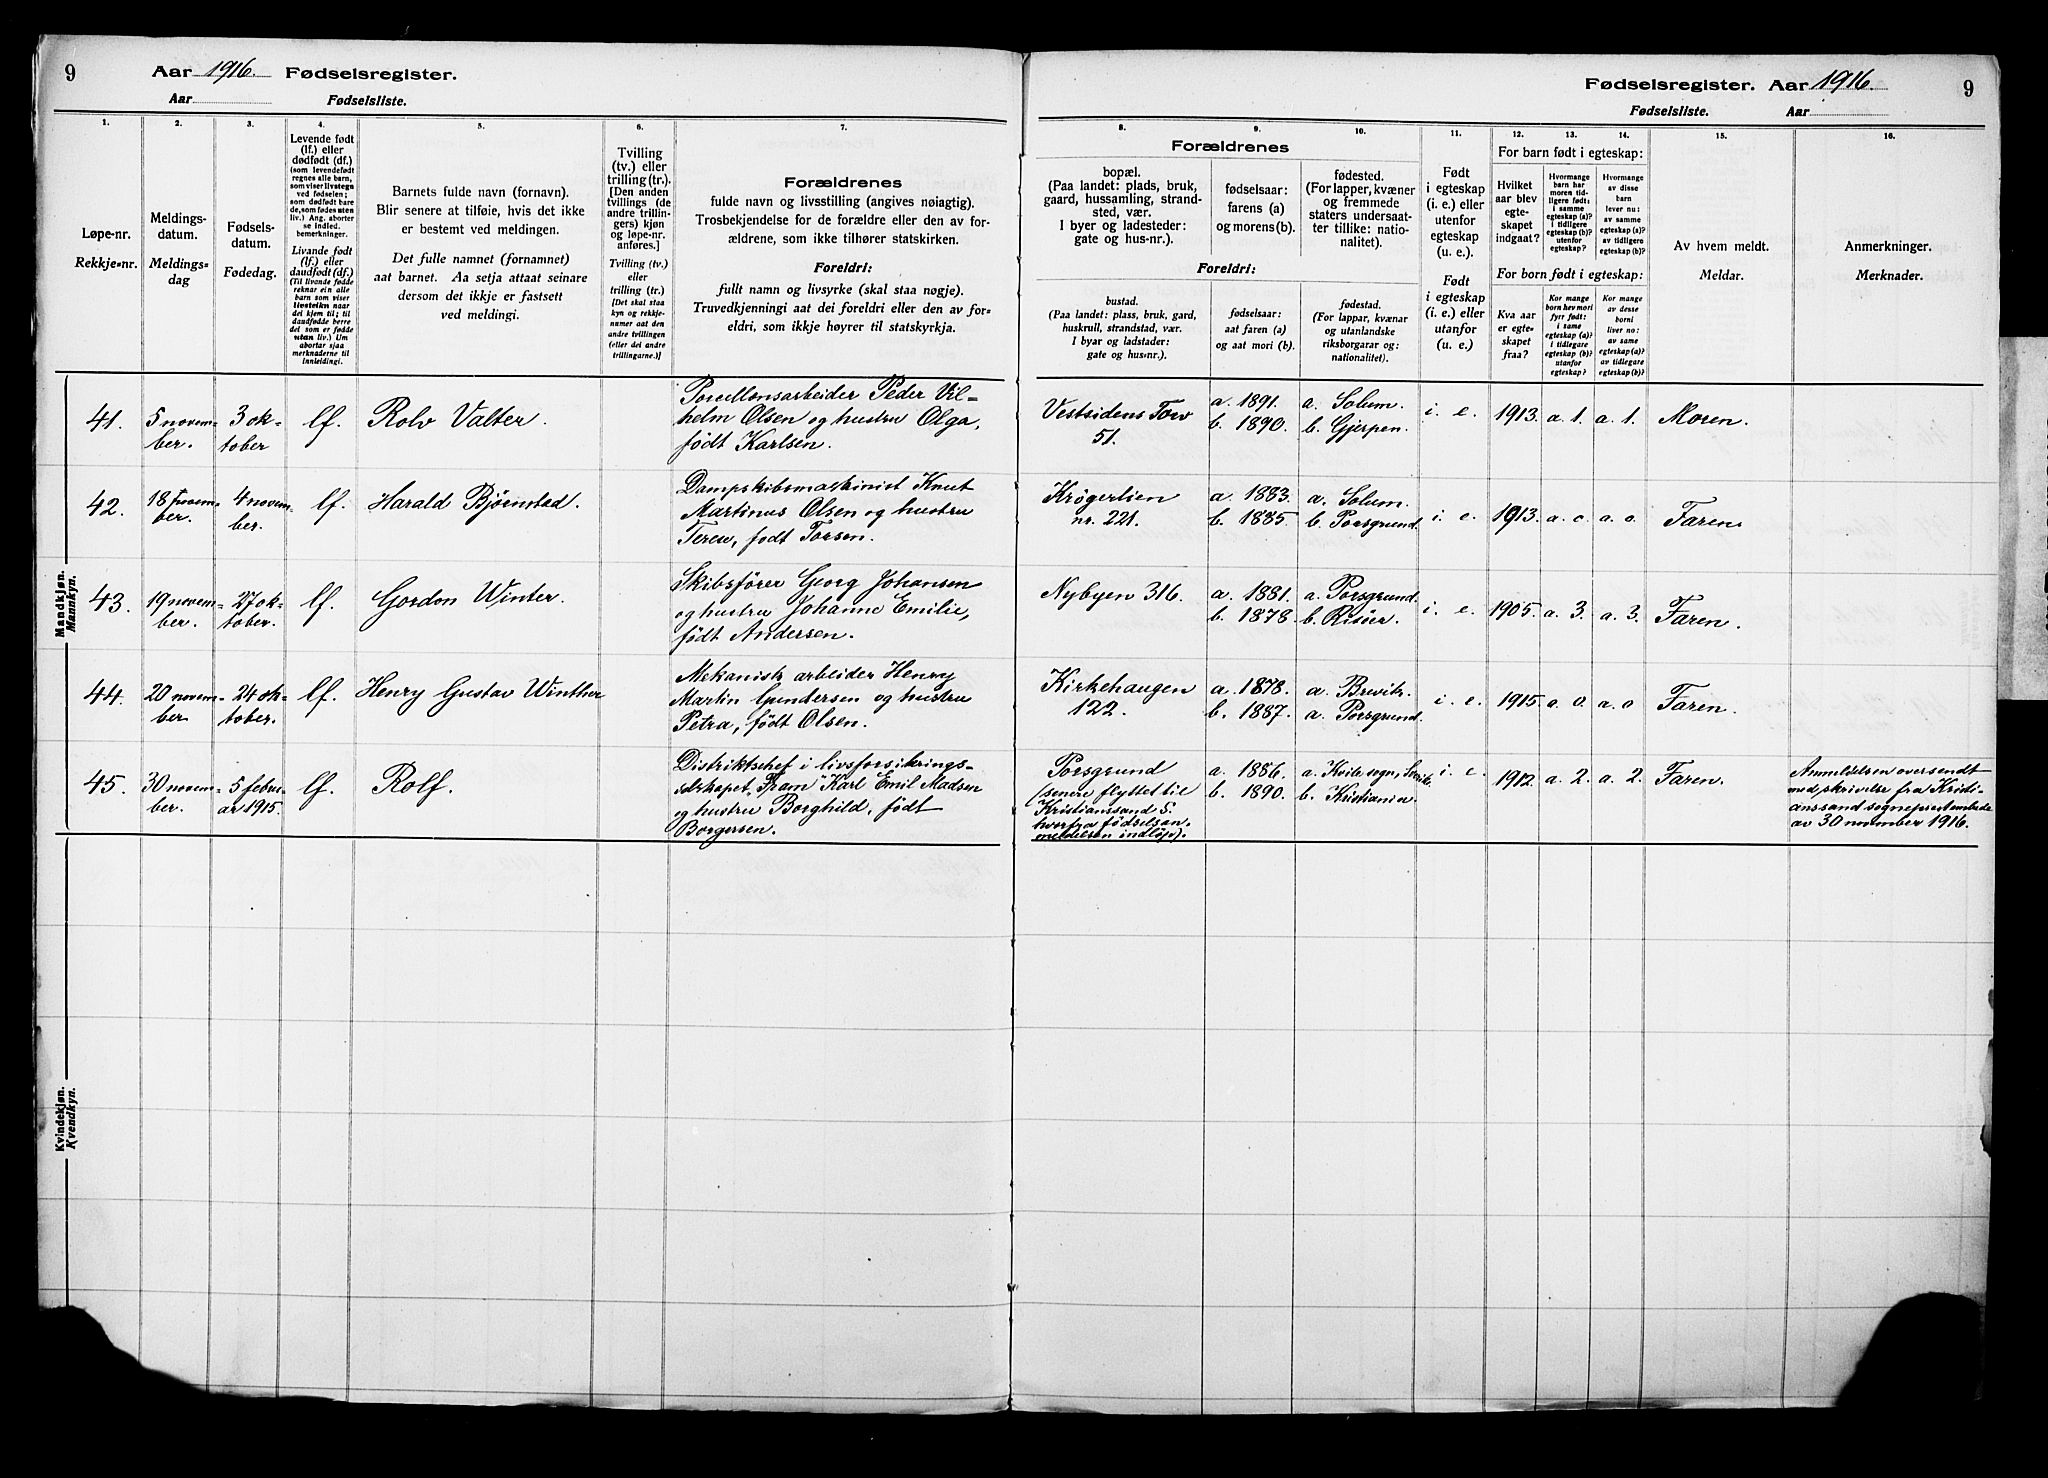 9 Aar 1916. Fødselsregister.
Aar Fødselsliste.
1. 2. 3. 4. 5. 6. 7.
Løpe-nr.
Rekkje=nr.
Meldings-
datum.
Meldings=
dag
Fødsels-
datum.
Fødedag.
Levende født
(lf.) eller
dødfødt (df.)
(som levendefødt
regnes alle barn,
som viser livstegn
ved fødselen;
som dødfødt bare
de, som fødes uten
liv.) Ang. aborter
se indled.
bemerkninger.
Livande født
(lf.) eller
daudfødt (df.)
(Til livande fødde
reknar ein alle
barn som viser
livsteikn naar
dei kjem til; til
daudfødde berre
dei som er fødde
utan liv.) Um
abortar sjaa
merknaderne til
innleidingi.
Barnets fulde navn (fornavn).
Blir senere at tilføie, hvis det ikke
er bestemt ved meldingen.
Det fulle namnet (fornamnet)
aat barnet. Aa setja attaat seinare
dersom det ikkje er fastsett
ved meldingi.
Tvilling
(tv.) eller
trilling (tr.).
[Den anden
tvillings (de
andre trillin-
gers) kjøn
og løpe-nr.
anføres.]
Tvilling (tv.)
eller
trilling (tr.)
[Det skal staa
kyn og rekkje-
numer aat den
andre tvillingen
(eller dei andre
trillingarne.)]
Forældrenes
fulde navn og livsstilling (angives nøiagtig).
Trosbekjendelse for de forældre eller den av for-
ældrene, som ikke tilhører statskirken.
Foreldri:
fullt namn og livsyrke (skal staa nøgje).
Truvedkjenningi aat dei foreldri eller den av for-
eldri, som ikkje høyrer til statskyrkja.
Mandkjøn.
Mannkyn.
41. 5 novem-
ber. 3 ok-
tober lf. Rolv Valter. Porcellænsarbeider Peder Vil-
helm Olsen og hustru Olga,
født Karlsen.
42. 18 novem-
ber. 4 novem-
ber. lf. Harald Bjørnstad. Dampskibsmaskinist Knut
Martinus Olsen og hustru
født Torsen.
43. 19 novem-
ber. 27 ok-
tober. lf. Gordon Winter. Skibsfører Georg Johansen
og hustru Johanne Emilie,
født Andersen.
44. 20 novem-
ber 24 ok-
tober. lf. Henry Gustav Winther Mekanisk arbeider Henry
Martin Gundersen og hustru
Petra, født Olsen.
45. 30 novem-
ber. 5 febru-
ar 1915. lf. Rolf. Distriktschef i livsforsikrings-
selskapet "Fram" Karl Emil Madsen
og hustru Borghild, født
Borgersen.
Kvindekjøn.
Kvendkyn.
Fødselsregister. Aar 1916. 9
Fødselsliste. Aar
8. 9. 10. 11. 12. 13. 14. 15. 16.
Forældrenes
bopæl.
(Paa landet: plads, bruk,
gaard, hussamling, strand-
sted, vær.
I byer og ladesteder:
gate og hus-nr.).
fødselsaar:
farens (a)
og morens (b).
fødested.
(For lapper, kvæner
og fremmede
staters undersaat-
ter tillike: natio-
nalitet).
Foreldri:
bustad.
(Paa landet: plass, bruk, gard,
huskrull, strandstad, vær.
I byar og ladstader:
gate og hus=nr.).
fødselsaar:
aat faren (a)
og aat mori (b).
fødestad.
(For lappar, kvænar
og utanlandske
riksborgarar og:
nationalitet).
Født
i egteskap
(i. e.) eller
utenfor
egteskap
(u. e.).
Født
i egteskap
(i. e.) eller
utanfor
(u. e.).
For barn født i egteskap:
Hvilket
aar blev
egte-
skapet
indgaat?
Hvormange
barn har
moren tid-
ligere født:
i samme
egteskap (a)?
i tidligere
egteskap (b)?
utenfor
egteskap?
Hvormange
av disse
barn
lever nu:
av samme
egteskap (a)?
av tidligere
egteskap (b)?
For born født i egteskap:
Kva aar
er egte-
skapet
fraa?
Kor mange
born hev mori
fyrr født:
i same
egteskap (a)?
i tidlegare
egteskap (b)?
utanfor
egteskap?
Kor mange
av desse
borni
liver no:
av same
egteskap (a)?
av tidlegare
egteskap (b)?
Av hvem meldt.
Meldar.
Anmerkninger.
Merknader.
Vestsidens Torv
51. a. 1891.
b. 1890. a. Solum.
b. Gjerpen. i. e. 1913. a. 1. a. 1. Moren.
Krøgerlien
nr. 221. a. 1883.
b. 1885. a. Solum.
b. Porsgrund. i. e. 1913. a. o. a. o. Faren
Nybyen 316. a. 1881.
b. 1878. a. Porsgrund.
b. Risöer. i. e. 1905. a. 3. a. 3. Faren.
Kirkehaugen
122. a. 1878.
b. 1887. a. Brevik.
a. Porsgrund. i. e. 1915. a. 0. a. 0 Faren.
Porsgrund
(senere flyttet til
Kristianssand S.
hvorfra fødselsan-
meldelsen indløp). a. 1886.
b. 1890. a. Kvite sogn,
b. Kristiania. i. e. 1912. a. 2. a. 2. Faren. Anmeldelsen oversendt
med skrivelse fra Kristi-
anssand sogneprestembede
av 30 november 1916.